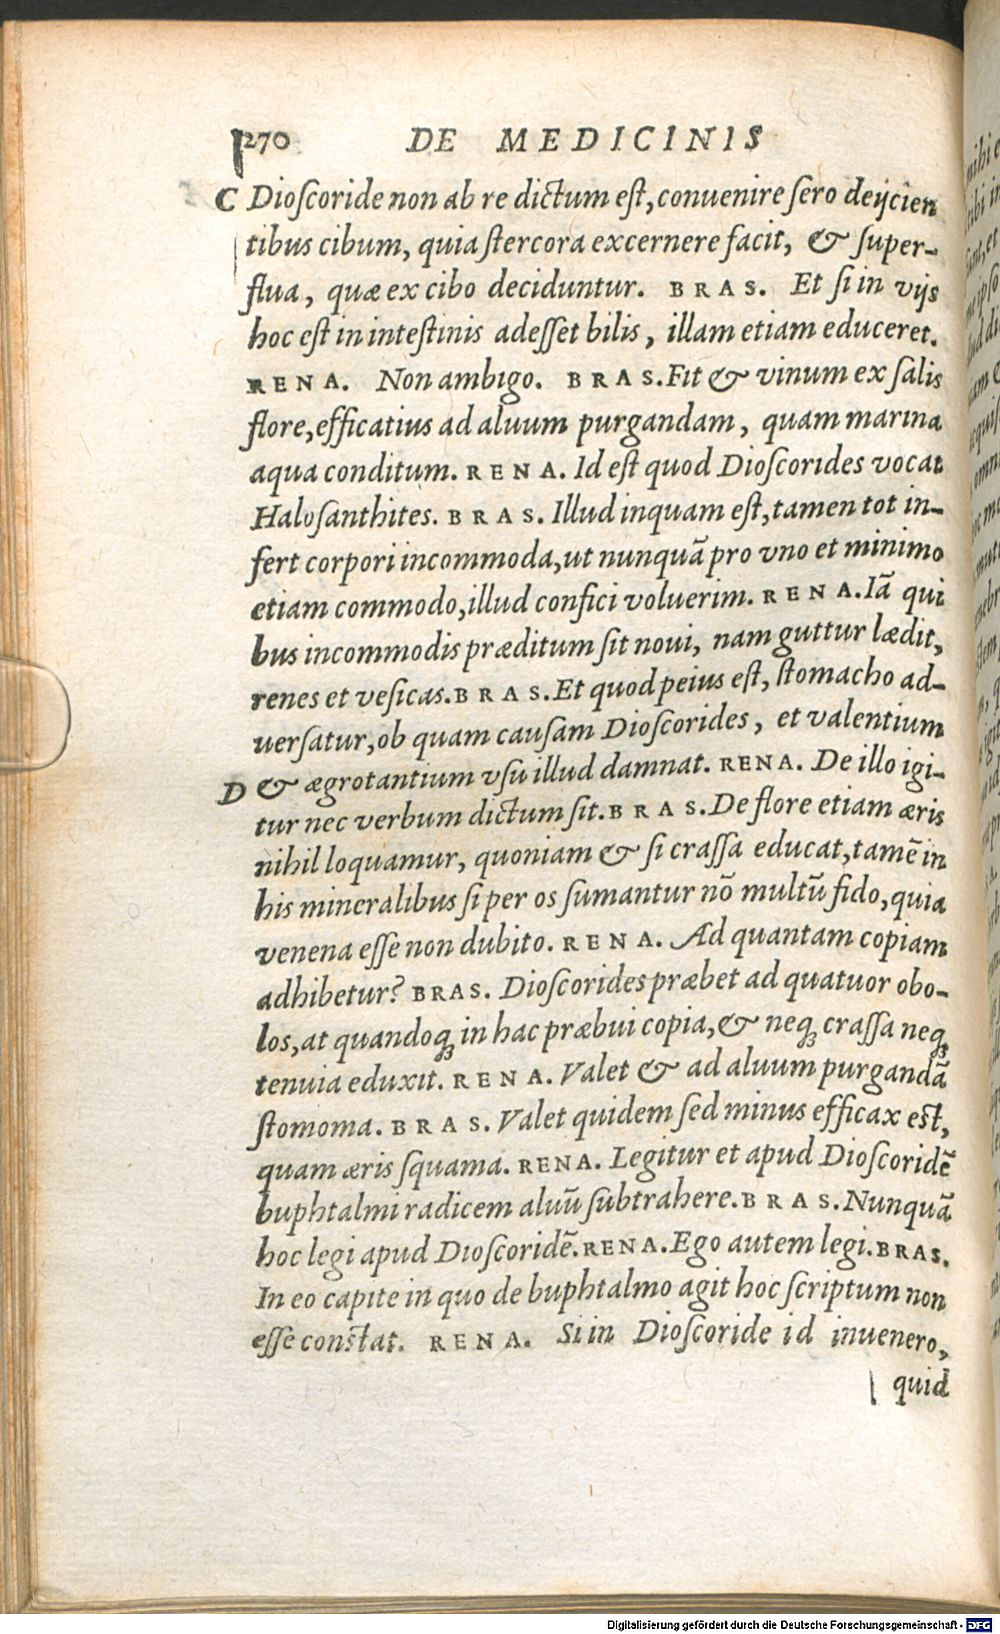 270 DE MEDICINIS
C Dioſcoride non ab re dictum eſt, convenire ſero deijcien
tibus cibum, quia ſtercora excernere facit, & ſuper-
flua, quæ ex cibo deciduntur. BRAS. Et ſi in vijs
hoc eſt in inteſtinis adeſſet bilis, illam etiam educeret.
RENA. Non ambigo. BRAS. Fit & vinum ex ſalis
flore, efficatius ad aluum purgandam, quam marina
aqua conditum. RENA. Id eſt quod Dioſcorides vocat
Haloſanthites. BRAS. Illud inquam eſt, tamen tot in-
fert corpori incommoda, ut nunquā pro vno et minimo
etiam commodo, illud confici voluerim. RENA. Iā qui
bus incommodis præditum ſit noui, nam guttur lædit,
renes et veſicas. BRAS. Et quod peius eſt, ſtomacho ad-
uerſatur, ob quam cauſam Dioſcorides, et valentium
D & ægrotantium vſu illud damnat. RENA. De illo igi-
tur nec verbum dictum ſit. BRAS. De flore etiam æris
nihil loquamur, quoniam & ſi craſſa educat, tamē in
his mineralibus ſi per os ſumantur nō multū fido, quia
venena eſſe non dubito. RENA. Ad quantam copiam
adhibetur? BRAS. Dioſcorides præbet ad quatuor obo-
los, at quandoꝗ in hac præbui copia, & neꝗ craſſa neꝗ
tenuia eduxit. RENA. Valet & ad aluum purgandā
ſtomoma. BRAS. Valet quidem ſed minus efficax eſt,
quam æris ſquama. RENA. Legitur et apud Dioſcoridē
buphtalmi radicem aluū ſubtrahere. BRAS. Nunquā
hoc legi apud Dioſcoridē. RENA. Ego autem legi. BRAS.
In eo capite in quo de buphtalmo agit hoc ſcriptum non
eſſe conſtat. RENA. Si in Dioſcoride id inuenero,
quid
Digitalisierung gefördert durch die Deutsche Forschungsgemeinschaft - DFG